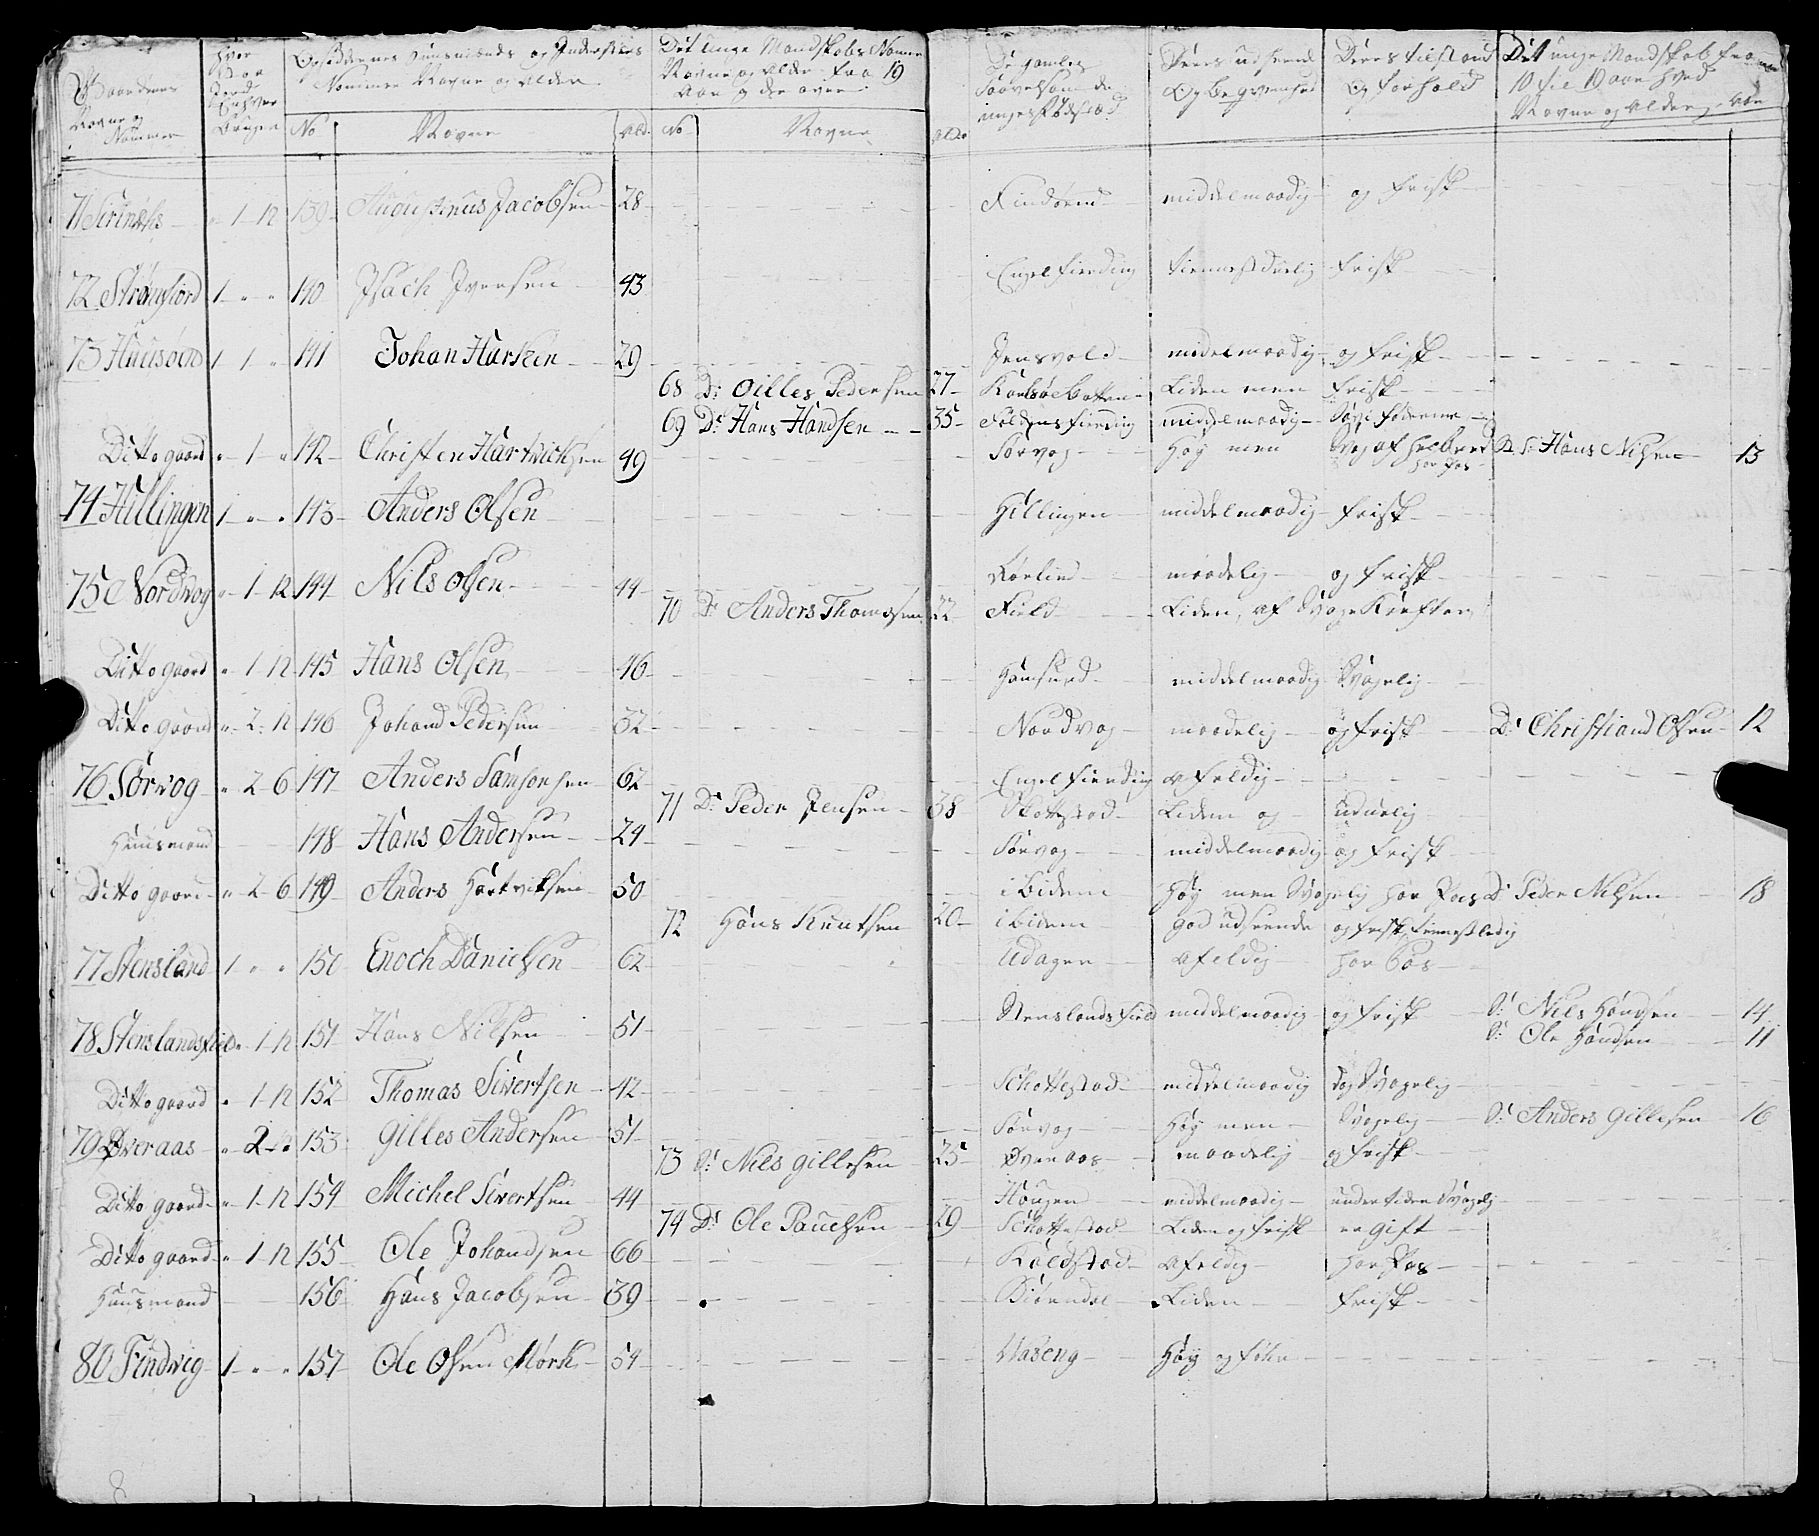 Gaardenes Navne og Nummer | Hvor stor Jord Enhver Bruger | Opsiddernes Huusmænds og Inderstes Nommer Navne og Alder | Det unge Mandskabs Nomer Navne og Alder fra 19 Aar og der over | De gamles saavelsom de unges Fødsted | Deres udseende Og begvemhed | Deres tilstand Og forhold | Det unge Mandskab fra 10 til 19 aar hvad Navne og Alder
No | Navne | Ald. | No | Navne | Alder
71 | 1-12 | 139 | Augustinus Jacobsen | 28 | middelmaadig | og frisk
72 Strømfiord | 1 | 140 | Isach Iversen | 43 | Engelfierding | frisk
73 | 1 1 | 141 | Johan | 29 | Jensvold | middelmaadig | og frisk
68 | D: Gilles Pedersen | 27 | Liden men | frisk
69 | D: Hans Handsen | 35 | middelmaadig
Ditto gaard | 1 | 142 | Christen Hartvichsen | 49 | Sørvog | Høy men | Svag af helbred har Pas | S: Hans Nilsen | 13
74 Hillingen | 1 | 143 | Anders Olsen | Hillingen | middelmaadig | frisk
75 Nordvog | 1-12 | 144 | Nils Olsen | 44 | maadelig | og frisk
70 | D: Anders Thomesen | 22 | Field | Liden, af Svage Kræfter
Ditto gaard | 1-12 | 145 | Hans Olsen | 46 | Hamsund | middelmaadig | Svagelig
Ditto gaard | 2-12 | 146 | Johand Pedersen | 32 | Nordvog | maadelig | og frisk | D: Christiand Olsen | 12
76 Sørvog | 2-6 | 147 | Anders Samsonsen | 62 | Engelfierding | afeldig
71 | D: Peder Jensen | 38 | Skottestad | Liden og | uduelig
Huusmand | 148 | Hans Andersen | 24 | Sørvog | middelmaadig | og frisk
Ditto gaard | 2-6 | 149 | Anders Hartviksen | 50 | ibidem | Høy men Svagelig har Pas | D: Peder Nilsen | 18
72 | Hans Knutsen | 20 | ibidem | god udseende | og frisk, tienestledig
77 Stensland | 1 | 150 | Enoch Danielsen | 62 | afeldig | har Pas
78 Stenslandsfield | 1-12 | 151 | Hans Nilsen | 51 | Stenslandsfield | middelmaadig | og frisk | S: Nils Handsen | 14
S: Ole Handsen | 11
Ditto gaard | 1-12 | 152 | Thomas Sivertsen | 42 | Schottestad | middelmaadig | dog Svagelig
79 Øveraas | 2 | 153 | Gilles Andersen | 51 | Sørvog | Høy men | Svagelig | S: Anders Gillesen | 16
73 | S: Nils Gillesen | 25 | Øveraas | maadelig | og frisk
Ditto gaard | 1-12 | 154 | Michel Sivertsen | 44 | Hougen | middelmaadig | undertiden Svagelig
74 | D: Ole Pauelsen | 29 | Schottestad | Liden og frisk | er gift
Ditto gaard | 1-12 | 155 | Ole Johandsen | 66 | Kaldstad | afeldig | har Pas
Huusmand | 156 | Hans Jacobsen | 39 | Liden | frisk
80 Findvig | 1 | 157 | Ole Olsen Mørk | 54 | Høy og føhr
8